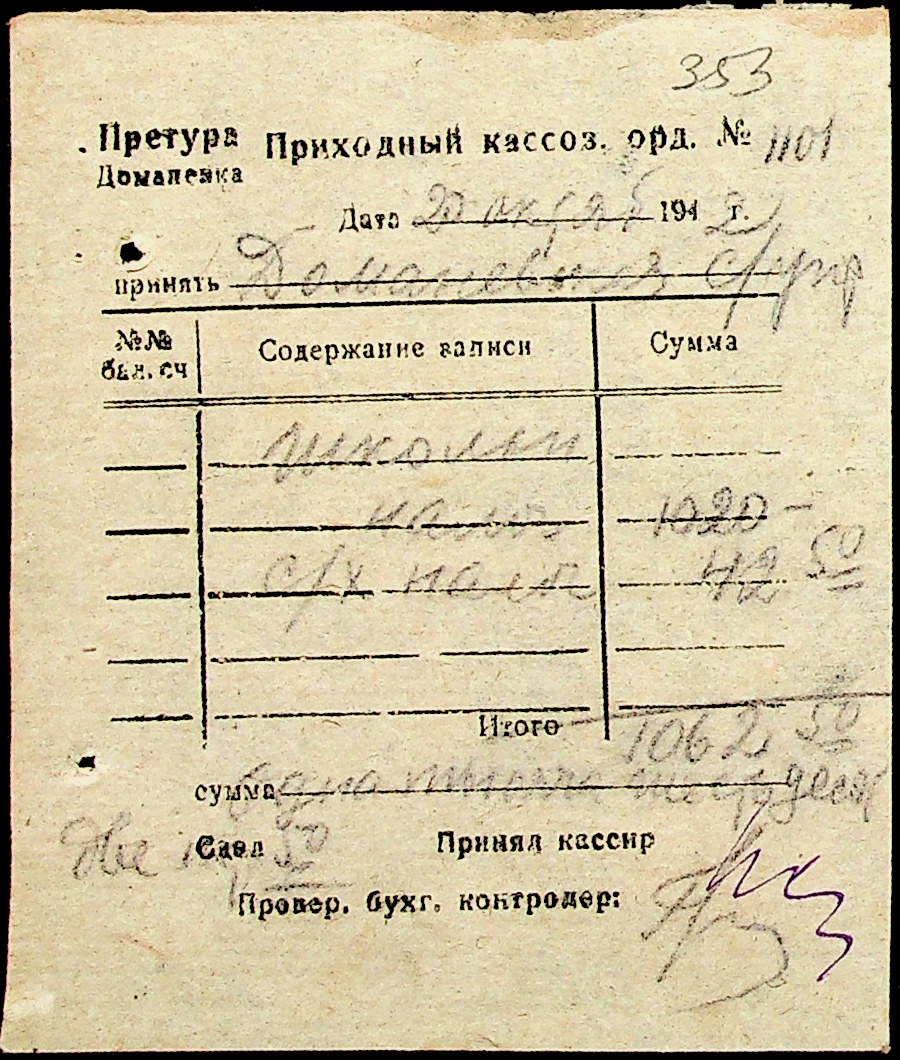 353
Претура Приходный кассоз. орд. № 1101
Доманевка
Дата 20 октяб 194 2 г.
принять Доманевка с/упр
№№ Содержание записи Сумма
бал. сч
школьн
налог 1020 –
с/х налог 42 50
Итого 1062 50
сумма одна тысяча шестьдесят
две 50
Сдал Принял кассир
Провер. бухг. контролер: